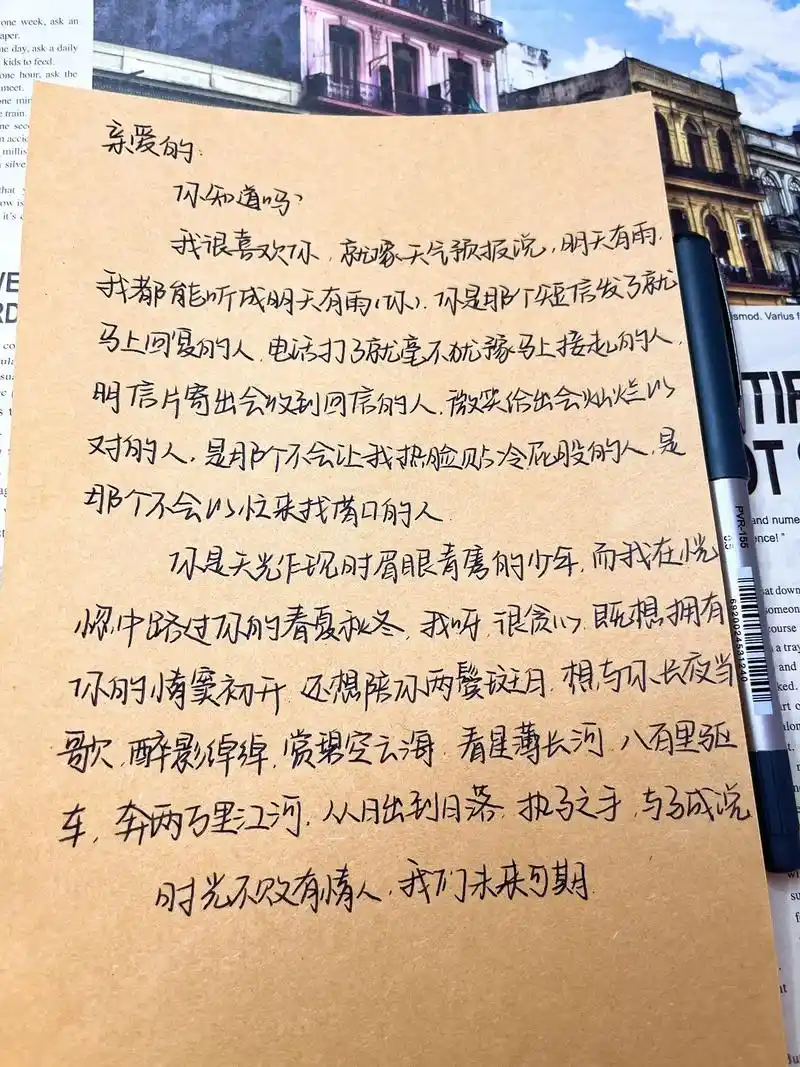 亲爱的:
你知道吗、
我很喜欢你,就像天气预报说,明天有雨.
我都能听成明天有雨(你).你是那个短信发了就
马上回复的人.电话打了就毫不犹豫马上接起的人.
明信片寄出会收到回信的人.微笑给出会灿烂以
对的人.是那个不会让我热脸贴冷屁股的人.是
那个不会以忙来找借口的人
你是天光乍现时眉眼青隽的少年.而我在恍
惚中路过你的春夏秋冬.我呀.很贪心.既想拥有
你的情窦初开.还想陪你两鬓斑白.想与你长夜当
歌.醉影绰绰.赏碧空云海.看星薄长河.八百里驱
车,奔两万里江河.从日出到日落.执子之手,与子成说
时光不败有情人.我们未来可期.
one week, ask an
aper.
ne day, ask a daily
kids to feed.
one hour, ask the
meet.
one min
e train.
one sec
millis
silve
that
it's c
PVR-155
6920024531240
ismod. Varius f
and nume
ence! "